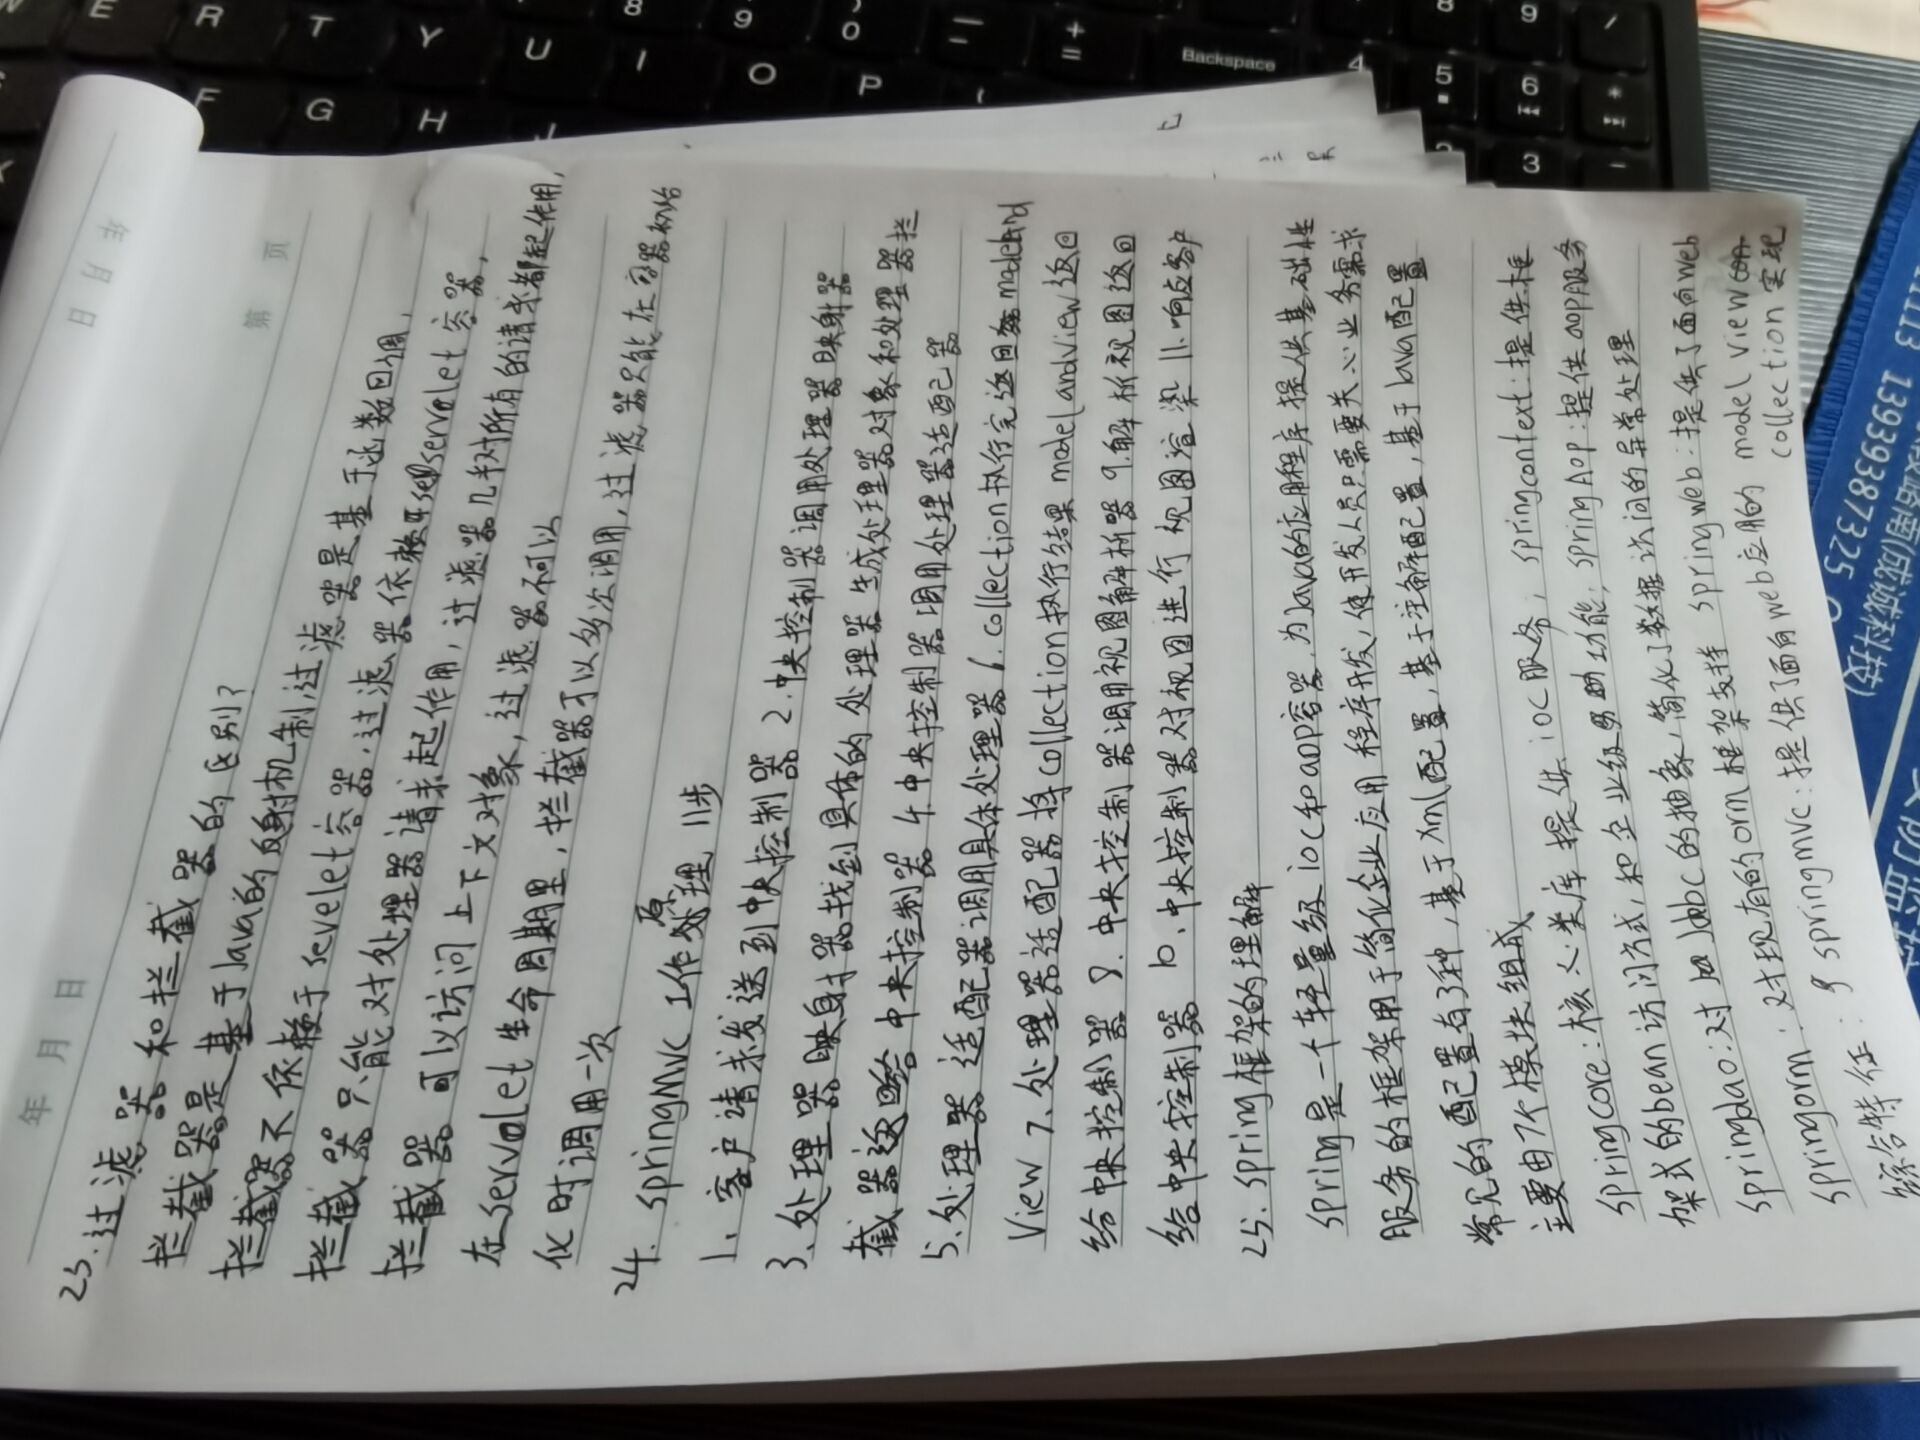 年 月 日
第 页
23.过滤器和拦截器的区别?
拦截器是基于Java的反射机制,过滤器是基于函数回调,
拦截器不依赖于sevelet容器,过滤器依赖于servalet容器,
拦截器只能对处理器请求起作用,过滤器几乎对所有的请求都起作用,
拦截器可以访问上下文对象,过滤器不可以
在servalet生命周期里,拦截器可以多次调用,过滤器只能在容器初始
化时调用一次
24. springMVC工作原理 11步
1、客户请求发送到中央控制器 2.中央控制器调用处理器映射器
3、处理器映射器找到具体的处理器生成处理器对象和处理器拦
截器返给中央控制器 4.中央控制器调用处理器适配器
5、处理器适配器调用具体处理器 6.collection执行完返回modeland
View 7、处理器适配器将collection执行结果modelandview返回
给中央控制器 8.中央控制器调用视图解析器 9.解析视图返回
给中央控制器 10、中央控制器对视图进行视图渲染 11.响应客户
25. spring框架的理解
spring是一个轻量级ioc和aop容器,为Java的应用程序提供基础性
服务的框架用于简化企业应用程序开发,使开发人员只需要关心业务需求
常见的配置有3种,基于Xml配置,基于注解配置,基于Java配置
主要由7个模块组成
springcore:核心类库提供ioc服务; springcontext:提供框
架式的bean访问方式,和企业级功能; springAop:提供aop服务
springdao:对Jdbc的抽象,简化了数据访问的异常处理
springorn:对现有的orm框架支持 springweb:提供了面向web
springmvc:提供了面向web应用的 model view
综合特征: collection 实现
年 月 日
E R T Y U I O P
F G H J
8 9 0
Backspace
4 5 6
3
13939387325